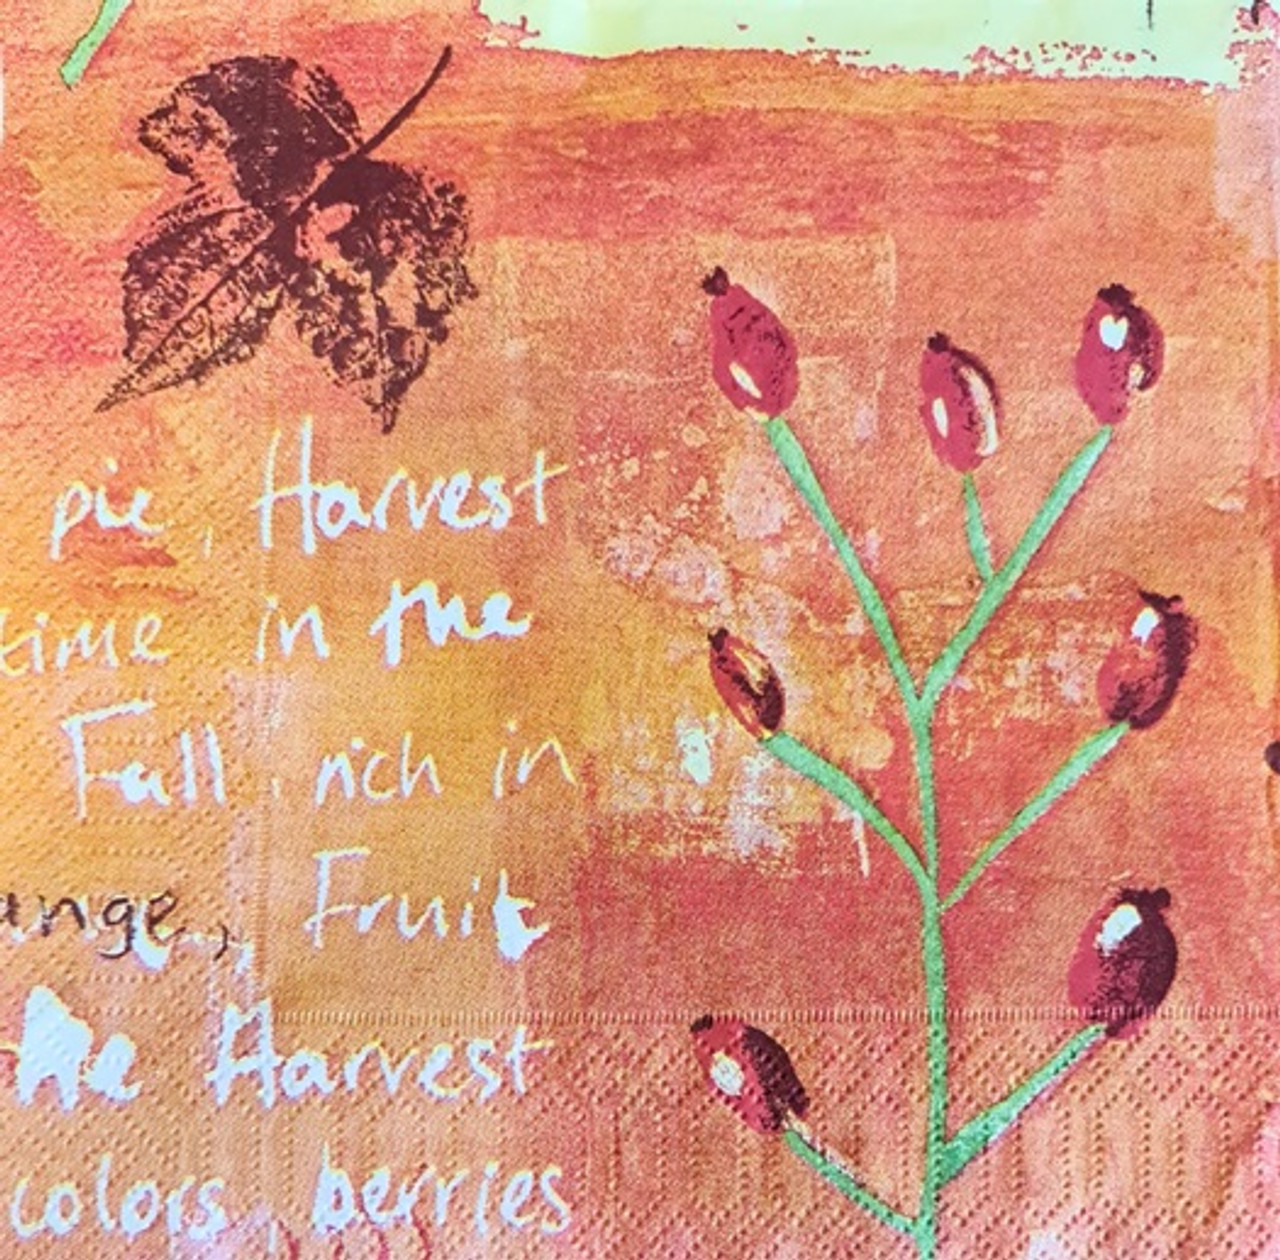 pie, Harvest
time in the
Fall, rich in
ange, Fruit
he Harvest
colors, berries